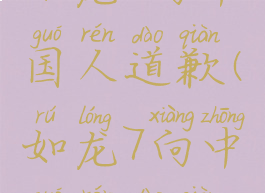 guó rén dào qiàn
国人道歉(
rú lóng xiàng zhōng
如龙7向中